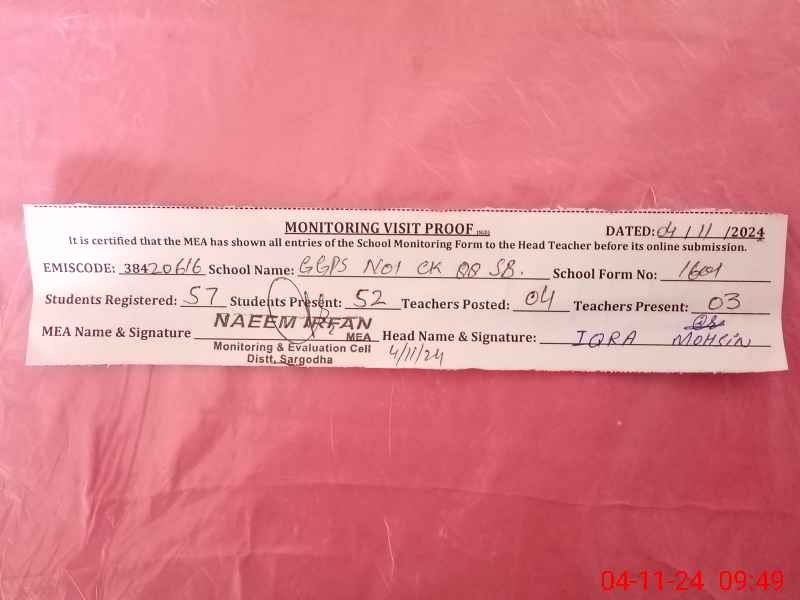 MONITORING VISIT PROOF
DATED: 04/11/2024
It is certified that the MEA has shown all entries of the School Monitoring Form to the Head Teacher before its online submission.
EMISCODE: 38420616 School Name: GGPS NO1 CK SB. School Form No: 1601
Students Registered: 57 Students Present: 52 Teachers Posted: 04 Teachers Present: 03
MEA Name & Signature NAEEM IRFAN MEA Head Name & Signature: IQRA MOHSIN
Monitoring & Evaluation Cell 4/11/24
Distt, Sargodha
04-11-24 09:49